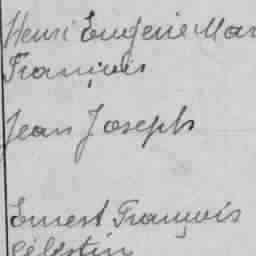 Henri Eugène Mar
François
Jean Joseph
Ernest François
Célestin